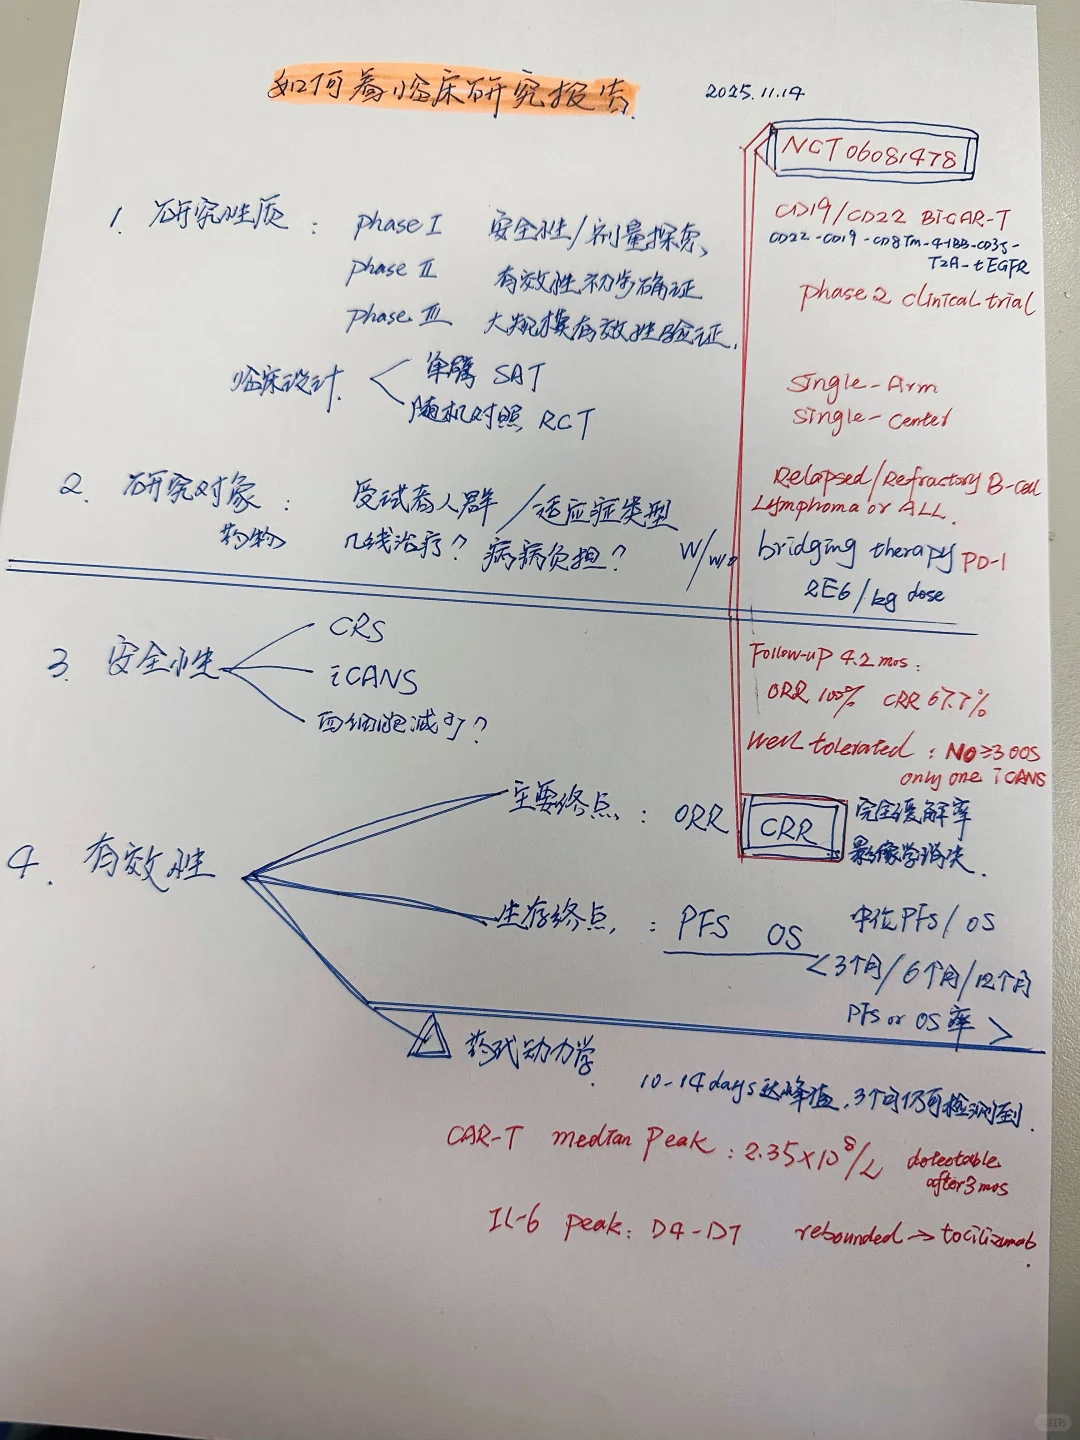 如何看临床研究报告.
2025.11.14
NCT06081478
1. 研究性质 : phase I 安全性/剂量探索、
phase II 有效性初步确证
phase III 大规模有效性验证.
临床设计. 单臂 SAT
随机对照 RCT
CD19/CD22 Bi-CAR-T
CD22-CD19-CD8Tm-4-1BB-CD3ζ-
T2A-tEGFR
phase 2 clinical trial
Single-Arm
Single-center
2. 研究对象 : 受试者人群/适应症类型
药物 几线治疗? 病病负担? W/w/o bridging therapy PD-1
Relapsed/Refractory B-cell
Lymphoma or ALL.
2E6/kg dose
3. 安全性 CRS
iCANS
血细胞减少?
Follow-up 4.2 mos:
ORR 100% CRR 67.7%
Well tolerated : No ≥3
only one iCANS
4. 有效性 主要终点 : ORR CRR 完全缓解率
影像学消失.
生存终点, : PFS OS 中位PFS/OS
<3个月/6个月/12个月
PFS or OS 率>
药代动力学.
10-14days达峰值,3个月仍可检测到.
CAR-T median peak : 2.35×10⁸/L detectable
after 3 mos
IL-6 peak: D4-D7 rebounded → tocilizumab.